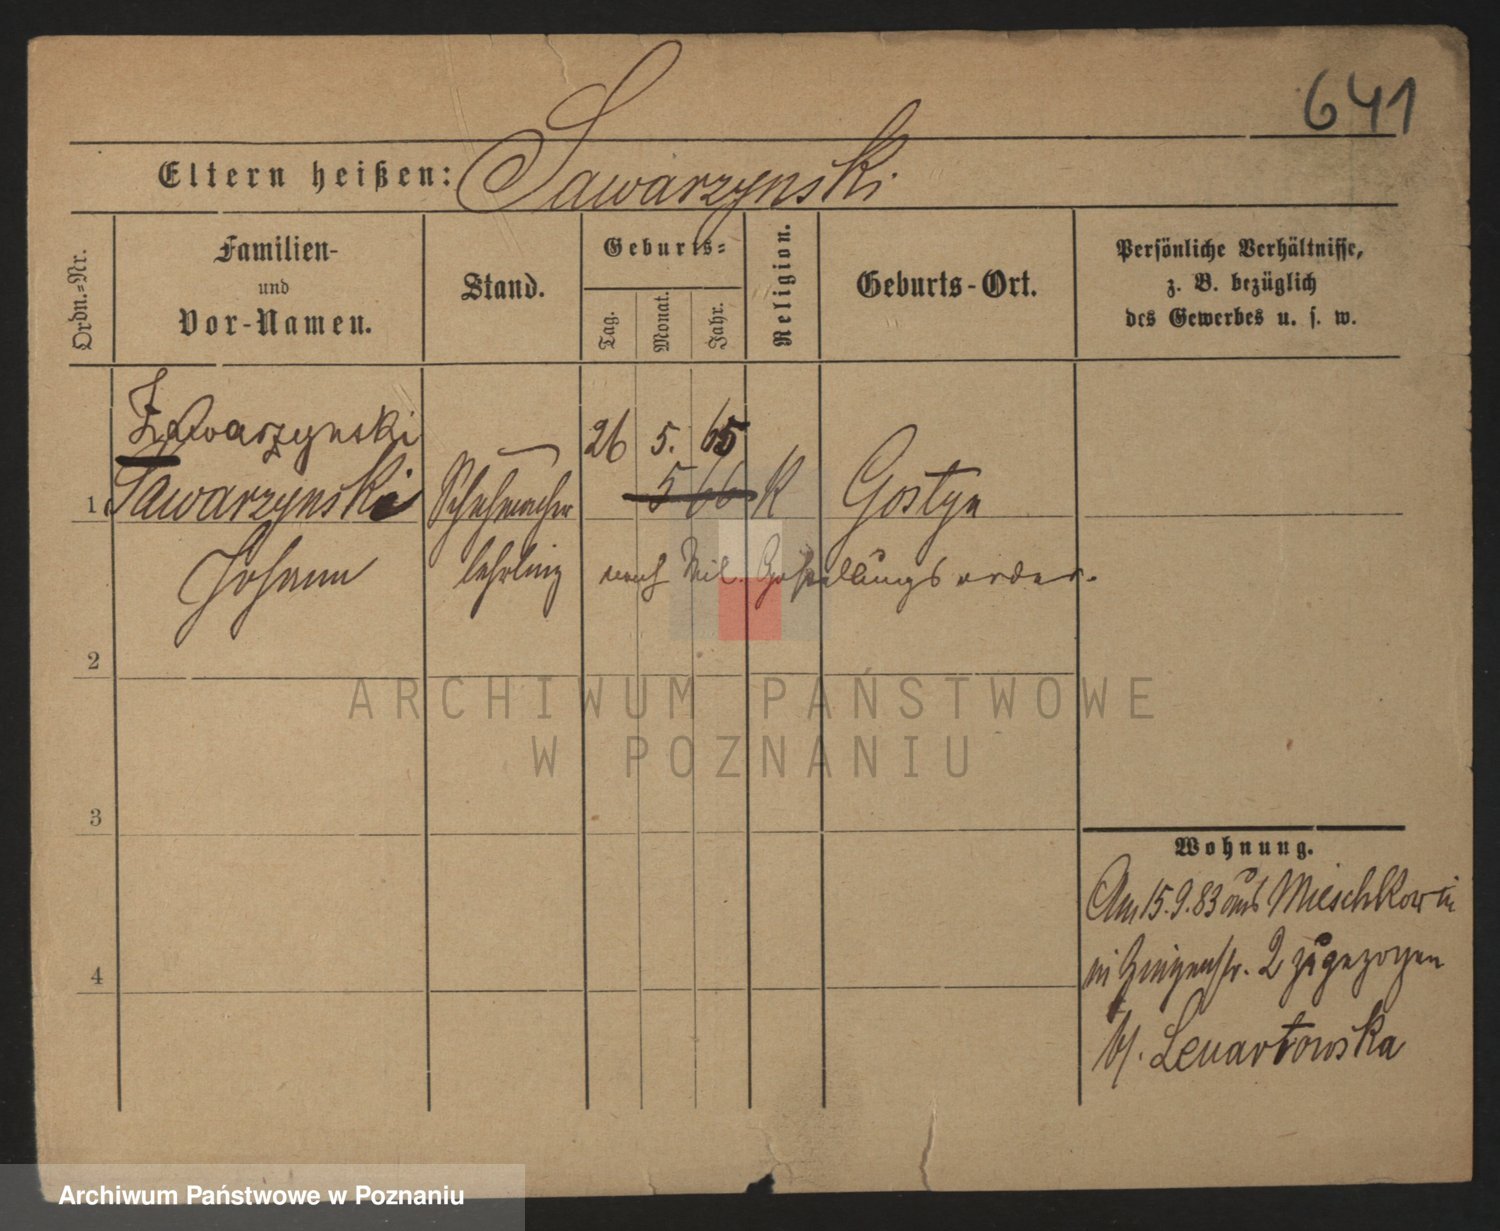 641
Eltern heißen: Sawarzynski
Ordn.=Nr.
Familien-
und
Vor-Namen.
Stand.
Geburts=
Tag.
Monat.
Jahr.
Religion.
Geburts-Ort.
Persönliche Verhältnisse,
z. B. bezüglich
des Gewerbes u. s. w.
Zawarzynski 26 5. 65
1 Sawarzynski Schuhmacher 5 66 K Gostyn
Johann lehrling nach Mil. Gestellungsorder.
2
3
4
Wohnung.
Am 15.9.83 aus Mieschkow in
in 2 zugezogen
b/. Lenartowska
ARCHIWUM PAŃSTWOWE
W POZNANIU
Archiwum Państwowe w Poznaniu